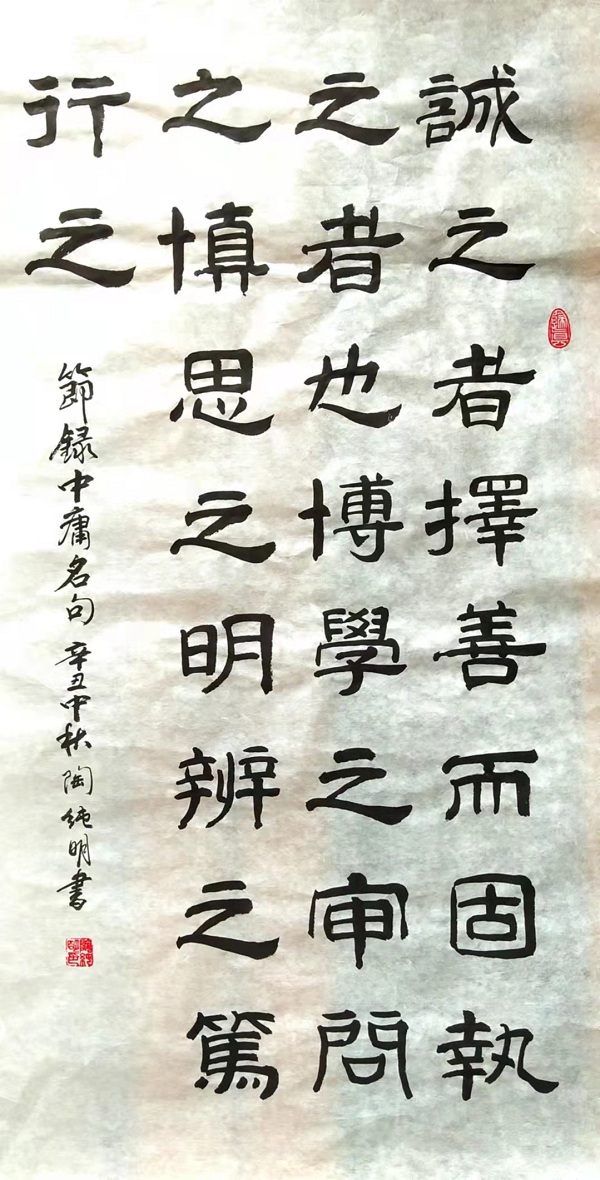 誠之者擇善而固執
之者也博學之审問
之慎思之明辨之篤
行之
節録中庸名句 辛丑中秋陶純明書